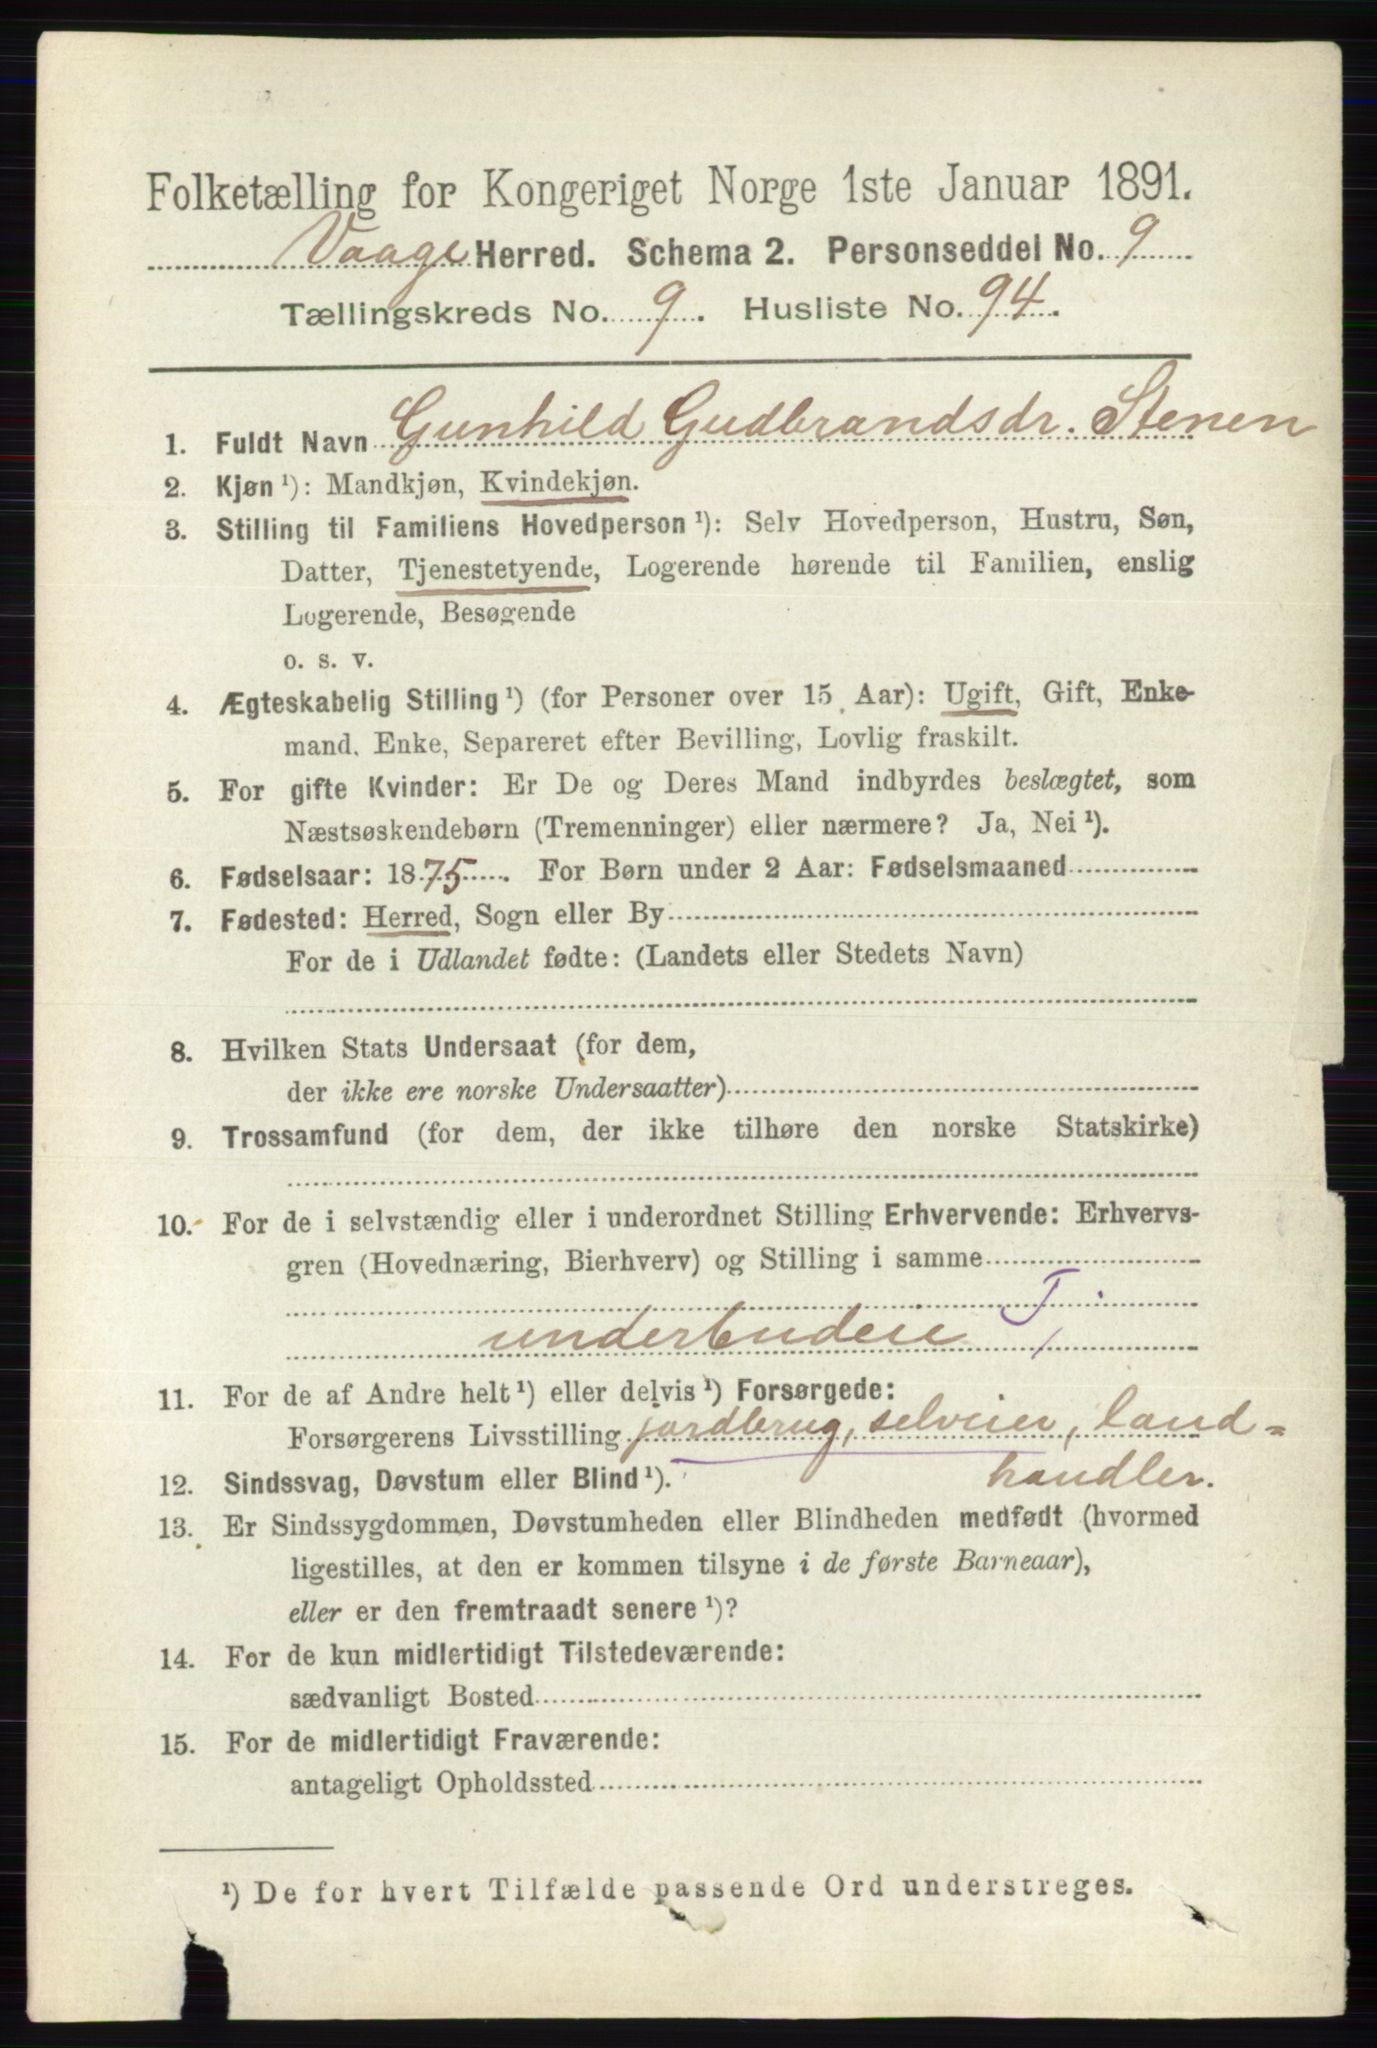 Folketælling for Kongeriget Norge 1ste Januar 1891.
Vaage Herred. Schema 2. Personseddel No. 9
Tællingskreds No. 9. Husliste No. 94.
1. Fuldt Navn Gunhild Gudbrandsdr. Stenen
2. Kjøn ¹): Mandkjøn, Kvindekjøn.
3. Stilling til Familiens Hovedperson ¹): Selv Hovedperson, Hustru, Søn,
Datter, Tjenestetyende, Logerende hørende til Familien, enslig
Logerende, Besøgende
o. s. v.
4. Ægteskabelig Stilling ¹) (for Personer over 15 Aar): Ugift, Gift, Enke-
mand, Enke, Separeret efter Bevilling, Lovlig fraskilt.
5. For gifte Kvinder: Er De og Deres Mand indbyrdes beslægtet, som
Næstsøskendebørn (Tremenninger) eller nærmere? Ja, Nei ¹).
6. Fødselsaar: 1875. For Børn under 2 Aar: Fødselsmaaned
7. Fødested: Herred, Sogn eller By
For de i Udlandet fødte: (Landets eller Stedets Navn)
8. Hvilken Stats Undersaat (for dem,
der ikke ere norske Undersaatter)
9. Trossamfund (for dem, der ikke tilhøre den norske Statskirke)
10. For de i selvstændig eller i underordnet Stilling Erhvervende: Erhvervs-
gren (Hovednæring, Bierhverv) og Stilling i samme
underbudeie T
11. For de af Andre helt ¹) eller delvis ¹) Forsørgede:
Forsørgerens Livsstilling jordbrug, selveier, land=
handler.
12. Sindssvag, Døvstum eller Blind ¹).
13. Er Sindssygdommen, Døvstumheden eller Blindheden medfødt (hvormed
ligestilles, at den er kommen tilsyne i de første Barneaar),
eller er den fremtraadt senere ¹)?
14. For de kun midlertidigt Tilstedeværende:
sædvanligt Bosted
15. For de midlertidigt Fraværende:
antageligt Opholdssted
¹) De for hvert Tilfælde passende Ord understreges.